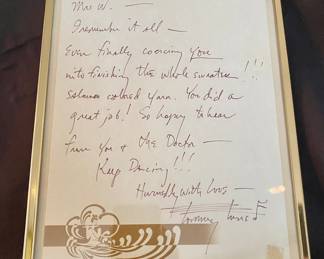 Mrs W. —
I remember it all —
Even finally coercing you
into finishing the whole sweater!!!
salmon colored yarn. You did a
great job! So happy to hear
from you & the Doctor —
Keep Dancing!!!
Humbly with love —
Tommy Tune